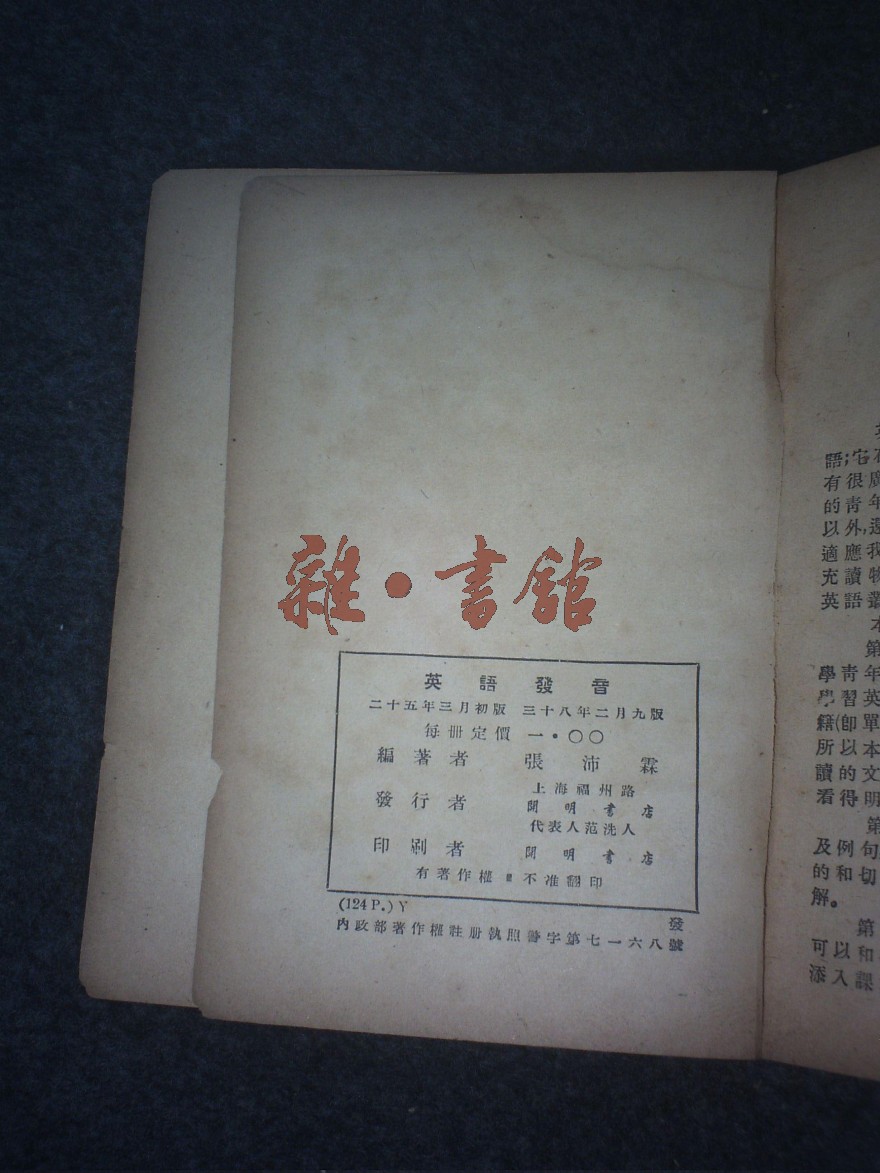 雜·書館
英語發音
二十五年三月初版 三十八年二月九版
每册定價 一·〇〇
編著者 張沛霖
發行者 上海福州路
開明書店
代表人范洗人
印刷者 開明書店
有著作權 不准翻印
(124 P.) Y
內政部著作權註册執照警字第七一六八號
發
語;它
有很廣
的青年
以外,還
適應我
充讀物
英語叢
本
第
學青年
學習英
籍(卽單
所以本
讀的文
看得明
第
及例句
的和切
解。
第
可以和
添入課